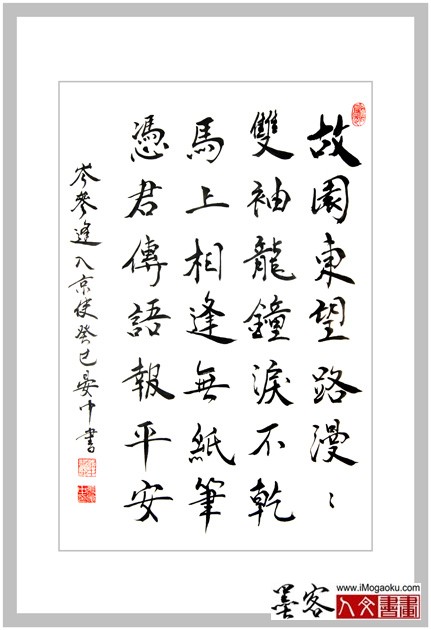 故園東望路漫〻
雙袖龍鐘淚不乾
馬上相逢無紙筆
憑君傳語報平安
岑參逢入京使癸巳晏中書
墨客
www.iMogaoku.com
人文書畫